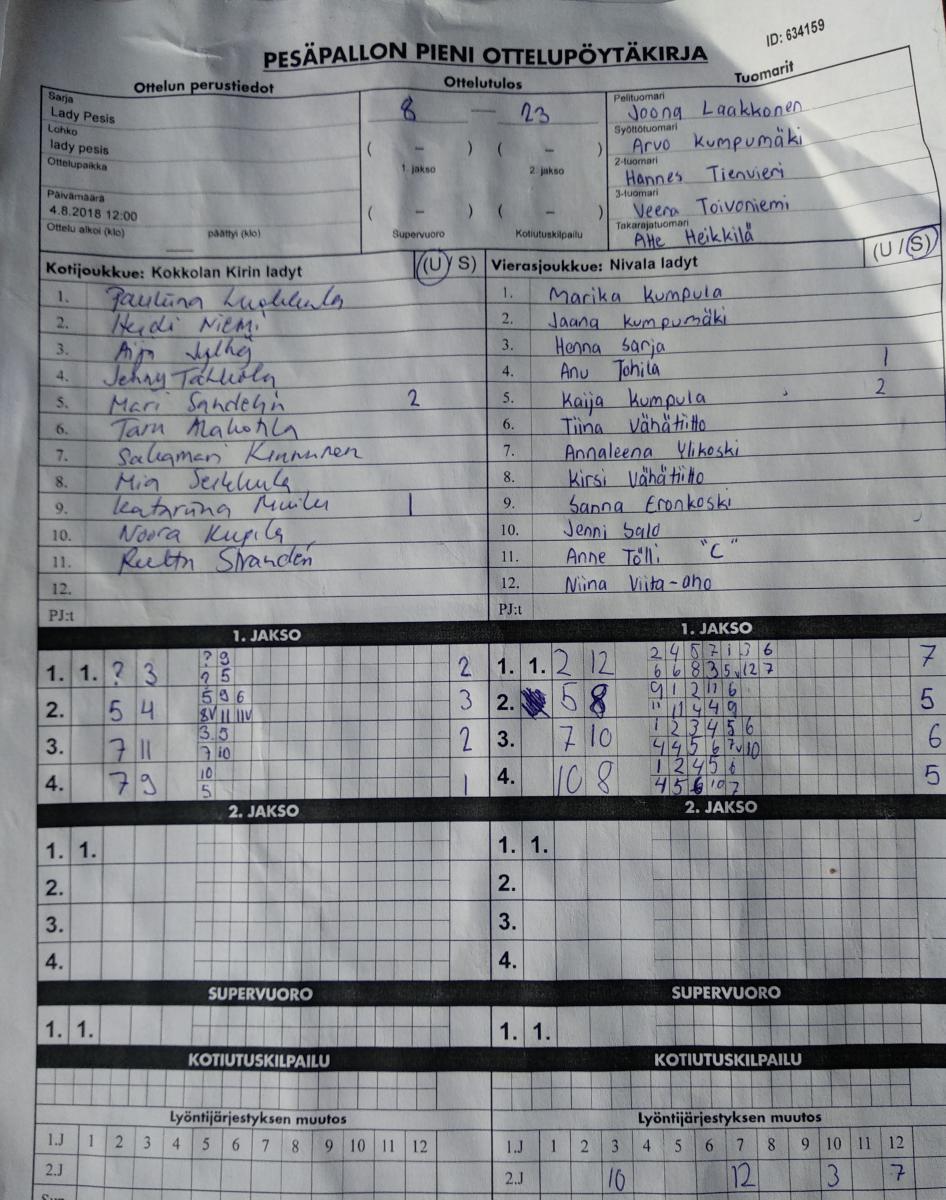 ID: 634159
PESÄPALLON PIENI OTTELUPÖYTÄKIRJA
Ottelun perustiedot
Ottelutulos
Tuomarit
Sarja
Lady Pesis
Lohko
lady pesis
Ottelupaikka
Päivämäärä
4.8.2018 12:00
Ottelu alkoi (klo) päättyi (klo)
8 — 23
( – ) ( – )
1. jakso 2. jakso
( – ) ( – )
Supervuoro Kotiutuskilpailu
Pelituomari
Joona Laakkonen
Syöttötuomari
Arvo Kumpumäki
2-tuomari
Hannes Tienvieri
3-tuomari
Veera Toivoniemi
Takarajatuomari
Atte Heikkilä
Kotijoukkue: Kokkolan Kirin ladyt (U/S)
1.
2. Heidi Niemi
3. Jylhä
4. Jenny
5. Mari Sandelin 2
6. Taru Alahotila
7. Kinnunen
8. Mia
9. Katariina 1
10. Noora Kupila
11. Strandén
12.
PJ:t
Vierasjoukkue: Nivala ladyt (U/S)
1. Marika Kumpula
2. Jaana Kumpumäki
3. Henna Sarja
4. Anu Tohila 1
5. Kaija Kumpula 2
6. Tiina Vähätiitto
7. Annaleena Ylikoski
8. Kirsi Vähätiitto
9. Sanna Eronkoski
10. Jenni Salo
11. Anne Tölli "C"
12. Niina Viita-aho
PJ:t
1. JAKSO
1. 1. ? 3 ? 9 2
? 5
2. 5 4 5 9 6 3
8V 11 11V
3. 7 11 3 5 2
7 10
4. 7 9 10 1
5
1. JAKSO
1. 1. 2 12 2 4 5 7 1 3 6 7
6 6 8 3 5v 12 7
2. 5 8 9 1 2 11 6 5
11 11 4 4 9
3. 7 10 1 2 3 4 5 6 6
4 4 5 6 7v 10
4. 10 8 1 2 4 5 6 5
4 5 6 10 7
2. JAKSO
1. 1.
2.
3.
4.
2. JAKSO
1. 1.
2.
3.
4.
SUPERVUORO
1. 1.
SUPERVUORO
1. 1.
KOTIUTUSKILPAILU
KOTIUTUSKILPAILU
Lyöntijärjestyksen muutos
1.J 1 2 3 4 5 6 7 8 9 10 11 12
2.J
Lyöntijärjestyksen muutos
1.J 1 2 3 4 5 6 7 8 9 10 11 12
2.J 10 12 3 7